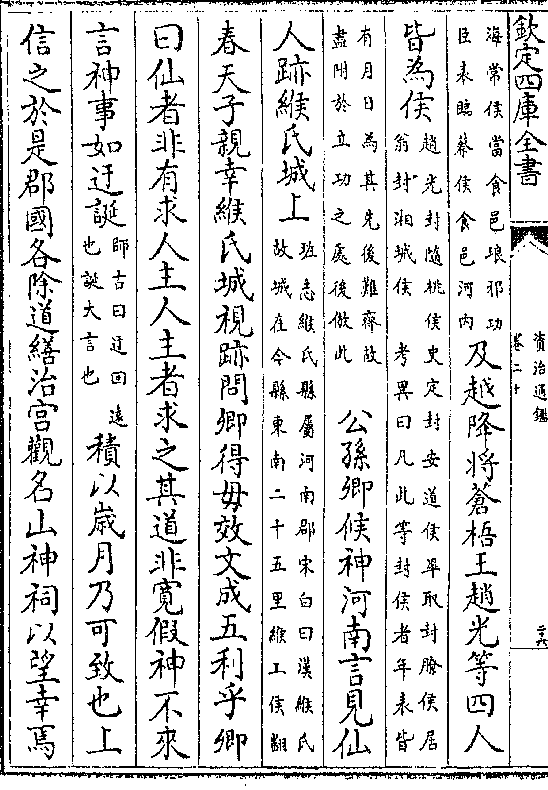 欽定四庫全書
資治通鑑
卷二十
海常侯當食邑琅邪功
臣表臨蔡侯食邑河內
及越降將蒼梧王趙光等四人
皆為侯
趙光封隨桃侯史定封安道侯畢取封膫侯居
翁封湘城侯 考異曰凡此等封侯者年表皆
有月日為其先後難齊故
盡附於立功之處後倣此
公孫卿候神河南言見仙
人跡緱氏城上
班志緱氏縣屬河南郡宋白曰漢緱氏
故城在今縣東南二十五里緱工侯翻
春天子親幸緱氏城視跡問卿得毋效文成五利乎卿
曰仙者非有求人主人主者求之其道非寬假神不來
言神事如迂誕
師古曰迂回遠
也誕大言也
積以歲月乃可致也上
信之於是郡國各除道繕治宮觀名山神祠以望幸焉